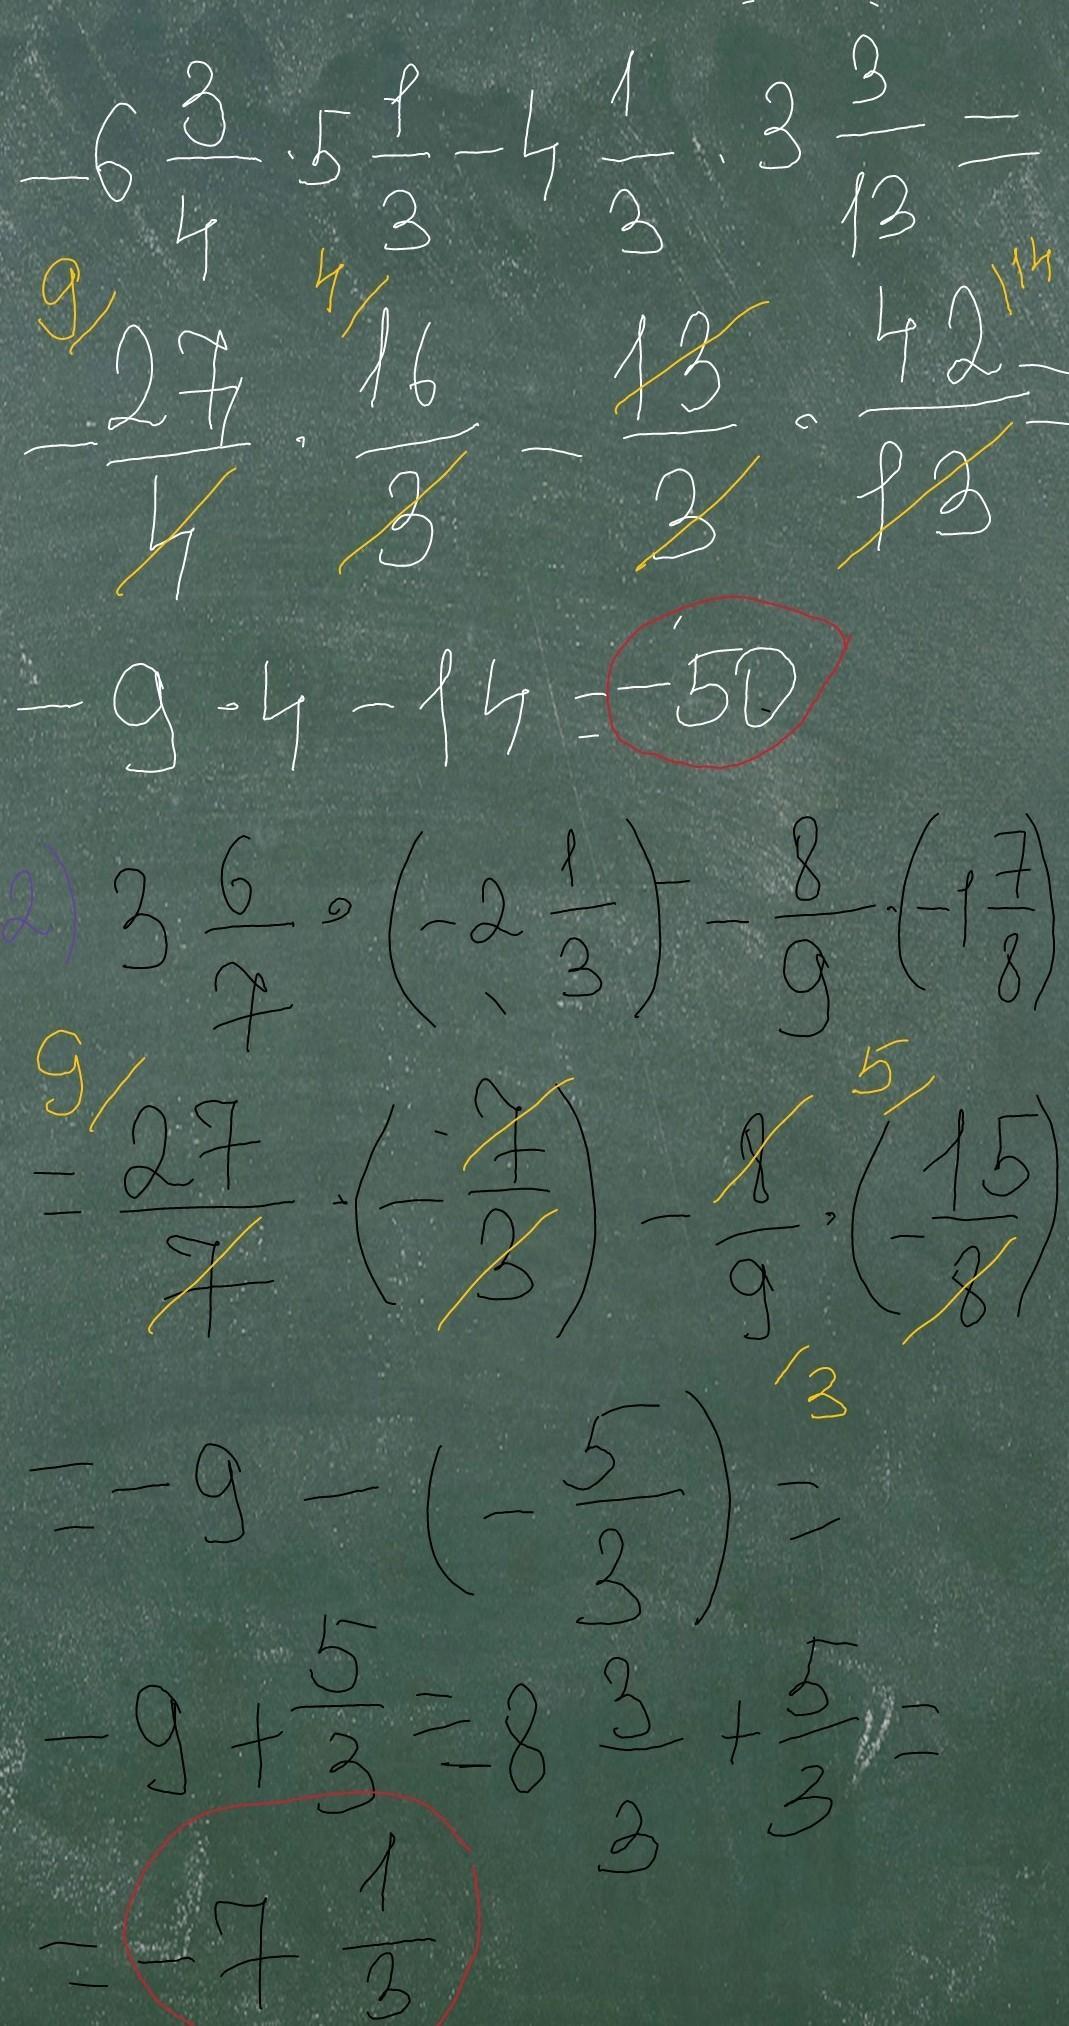 -6 3/4 · 5 1/3 - 4 1/3 · 3 3/13 =
9 4 14
- 27/4 · 16/3 - 13/3 · 42/13 =
- 9 · 4 - 14 = -50
2) 3 6/7 · (-2 1/3) - 8/9 · (-1 7/8)
9 5
= 27/7 · (- 7/3) - 8/9 · (- 15/8)
3
= -9 - (- 5/3) =
-9 + 5/3 = -8 3/3 + 5/3 =
= -7 1/3